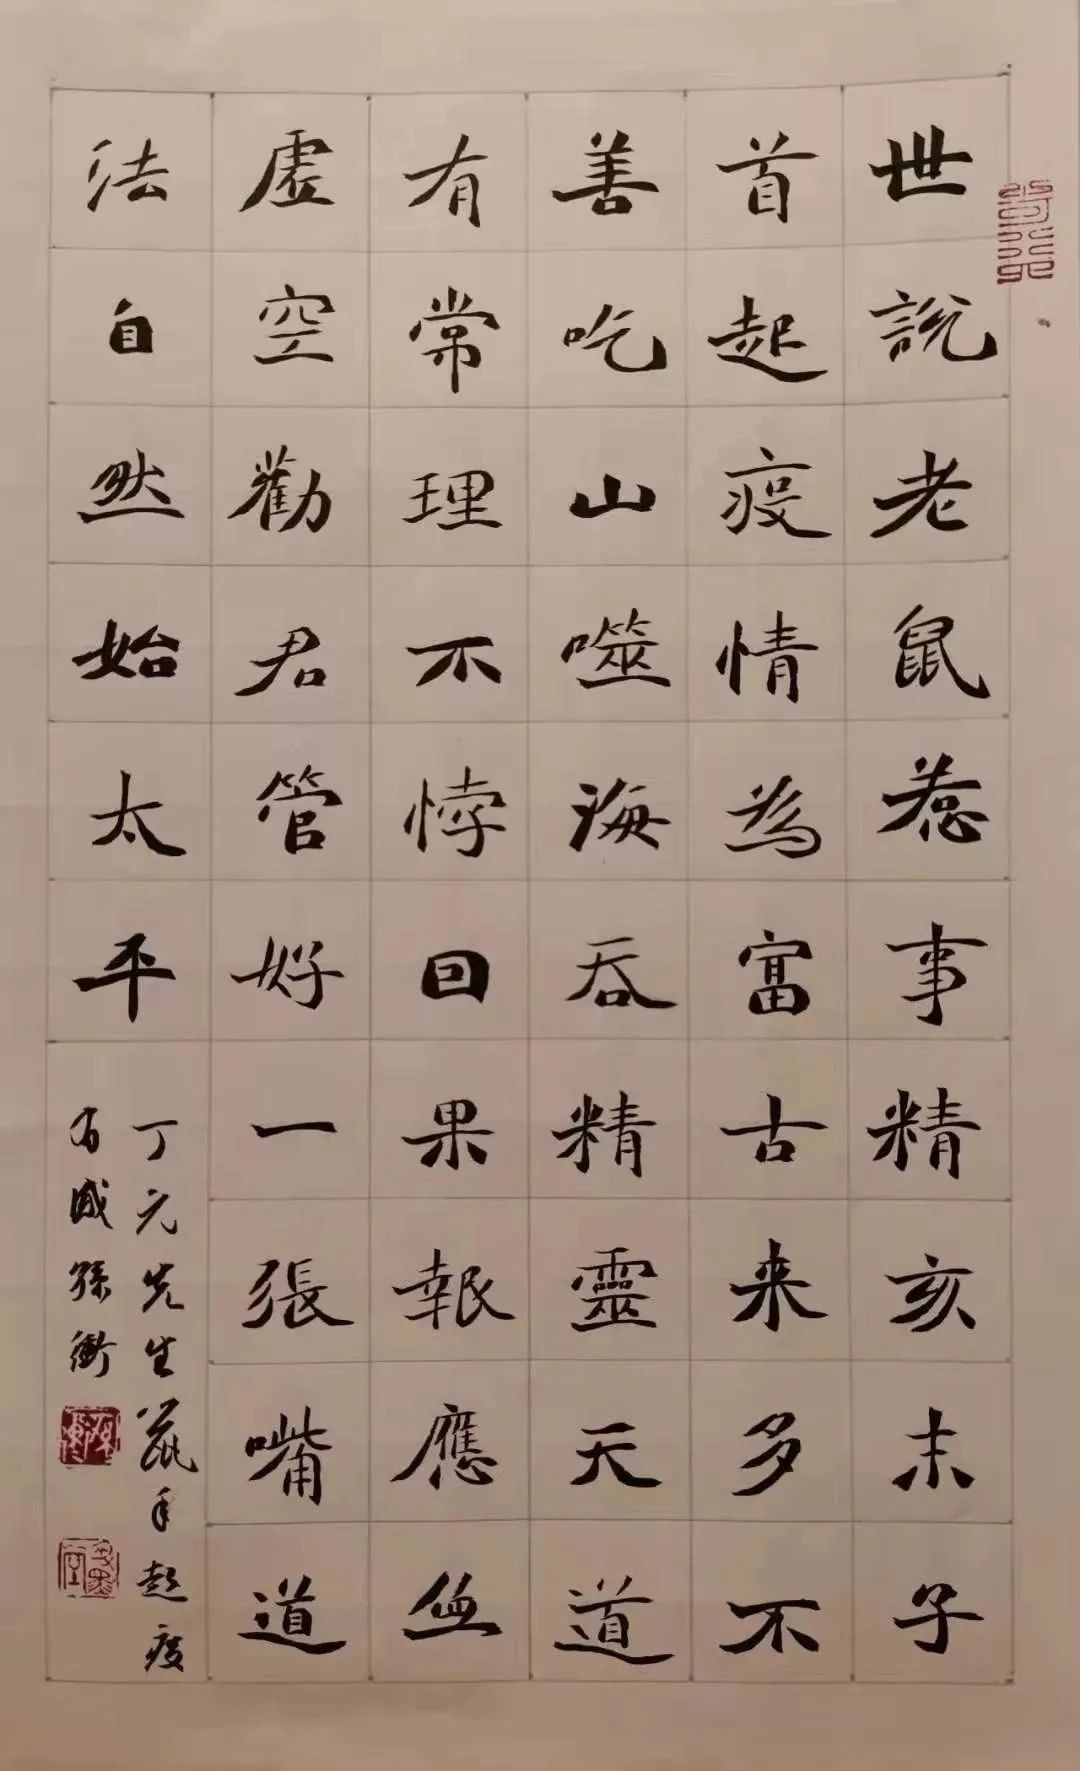 世說老鼠惹事精亥末子
首起疫情為富古来多不
善吃山噬海吞精靈天道
有常理不悖因果報應並
虛空勸君管好一張嘴道
法自然始太平
丁元先生鼠年起疫
有感孫衛